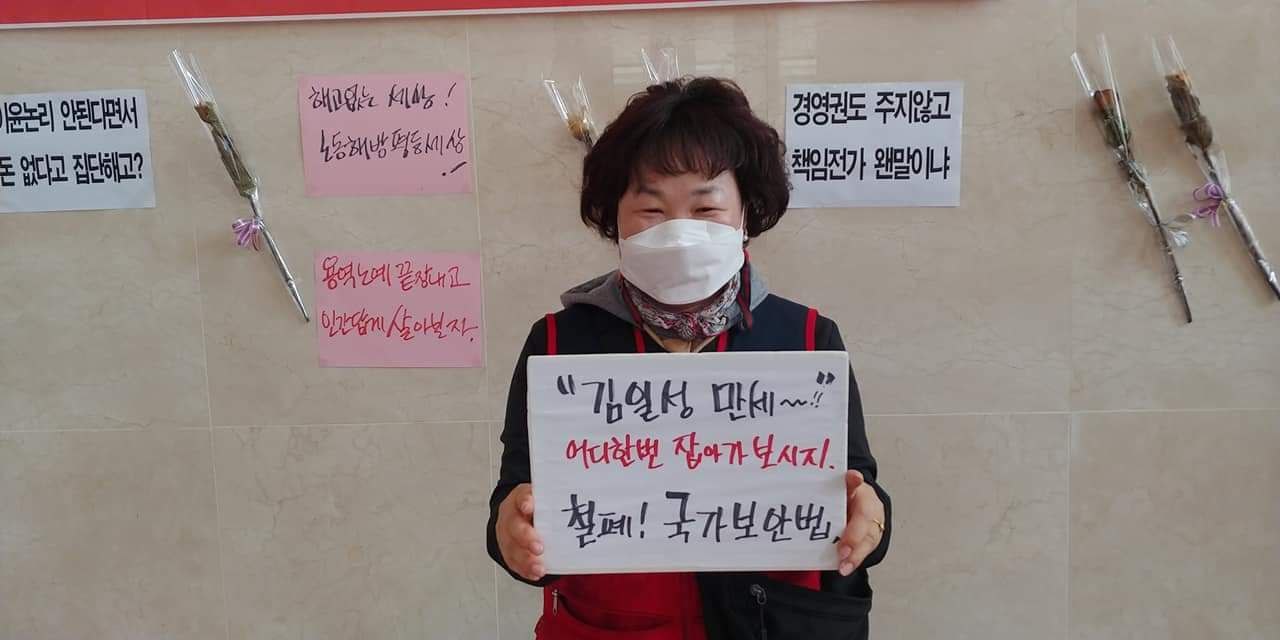 이윤논리 안된다면서
돈 없다고 집단해고?
해고없는 세상!
노동해방 평등세상!
용역노예 끝장내고
인간답게 살아보자.
경영권도 주지않고
책임전가 왠말이냐
"김일성 만세~!!"
어디한번 잡아가보시지.
철폐! 국가보안법.